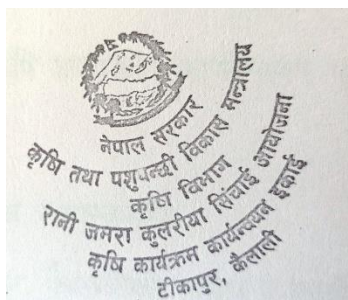 नेपाल सरकार
कृषि तथा पशुपन्छी विकास मन्त्रालय
कृषि विभाग
रानी जमरा कुलरीया सिंचाई आयोजना
कृषि कार्यक्रम कार्यन्वयन इकाई
टीकापुर, कैलाली